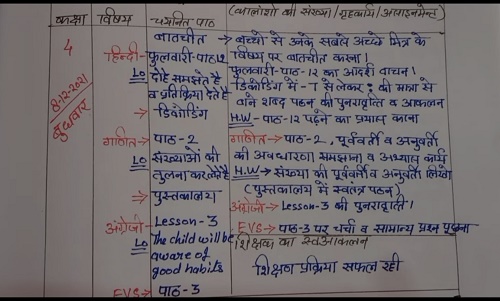 कक्षा विषय चयनित पाठ (कालांशो की संख्या/गृहकार्य/असाइनमेन्ट)
8-12-2021
बुधवार
4
बातचीत → बच्चों से उनके सबसे अच्छे मित्र के
विषय पर बातचीत करना।
हिन्दी- फुलवारी-पाठ12
फुलवारी-पाठ-12 का आदर्श वाचन।
LO दोहे समझते है
व प्रतिक्रिया देते है
डिकोडिंग में - ा से लेकर : की मात्रा से
बने शब्द पठन की पुनरावृति व आकलन
→ डिकोडिंग
H.W → पाठ-12 पढ़ने का प्रयास करना
गणित→ पाठ-2
गणित→ पाठ-2, पूर्ववर्ती व अनुवर्ती
की अवधारणा समझाना व अभ्यास कार्य
LO संख्याओं की
तुलना कर लेते है
H.W → संख्या की पूर्ववर्ती व अनुवर्ती लिखो
→ पुस्तकालय
(पुस्तकालय में स्वतंत्र पठन)
अंग्रेजी→ Lesson-3 की पुनरावृति।
अंग्रेजी- Lesson-3
EVS→ पाठ-3 पर चर्चा व सामान्य प्रश्न पूछना
LO The child will be
aware of
good habits
शिक्षक का स्वआकलन
शिक्षण प्रक्रिया सफल रही
EVS → पाठ-3